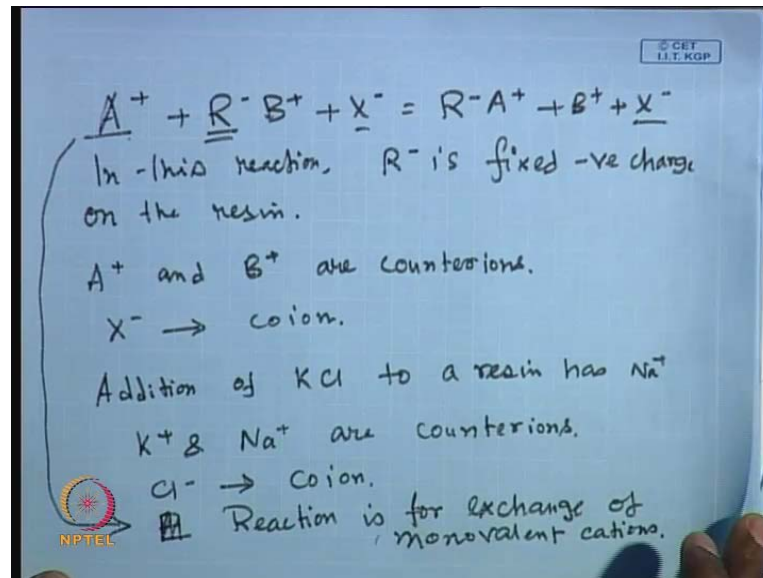 © CET
I.I.T. KGP
A⁺ + R⁻ B⁺ + X⁻ = R⁻A⁺ + B⁺ + X⁻
In this reaction, R⁻ is fixed -ve charge
on the resin.
A⁺ and B⁺ are counterions.
X⁻ → coion.
Addition of KCl to a resin has Na⁺
K⁺ & Na⁺ are counterions.
Cl⁻ → coion.
Reaction is for exchange of
monovalent cations.
NPTEL